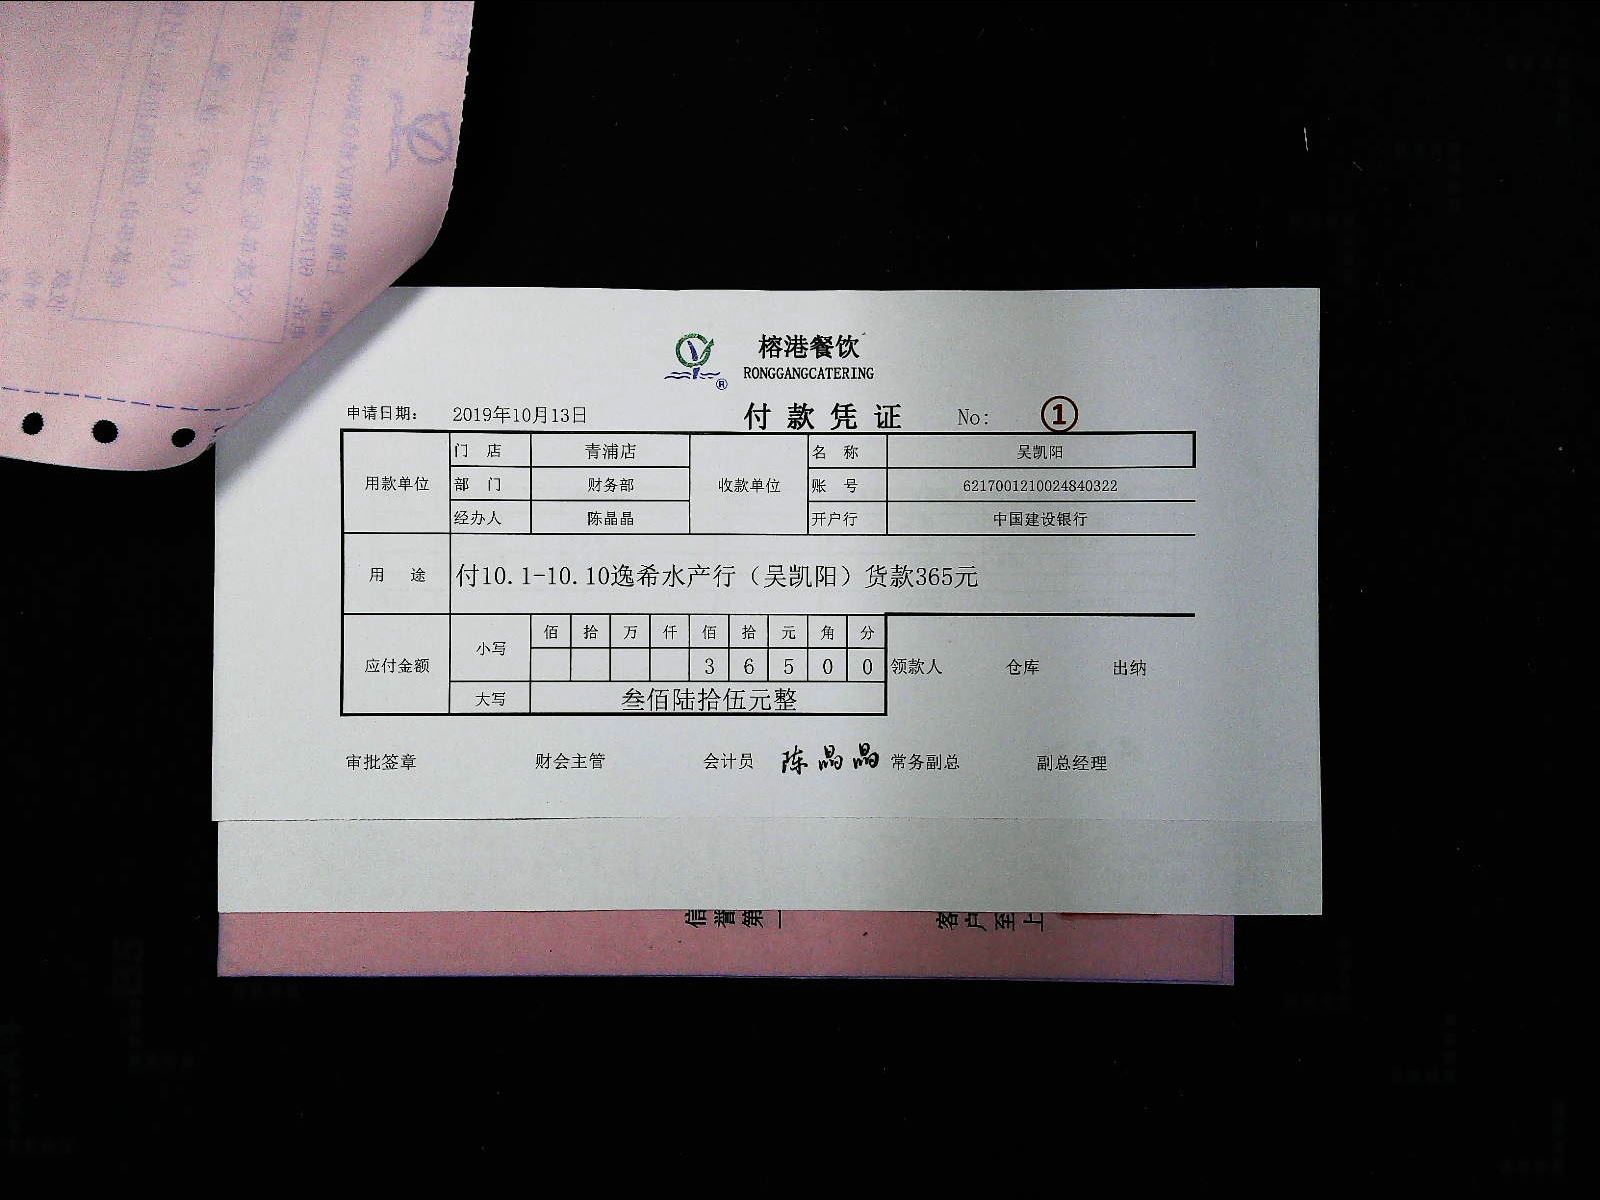 榕港餐饮
RONGGANGCATERING
申请日期： 2019年10月13日 付款凭证 No: ①
用款单位 门店 青浦店 收款单位 名称 吴凯阳
部门 财务部 账号 6217001210024840322
经办人 陈晶晶 开户行 中国建设银行
用途 付10.1-10.10逸希水产行（吴凯阳）货款365元
应付金额 小写 佰 拾 万 仟 佰 拾 元 角 分
3 6 5 0 0 领款人 仓库 出纳
大写 叁佰陆拾伍元整
审批签章 财会主管 会计员 陈晶晶 常务副总 副总经理
信誉第一 客户至上